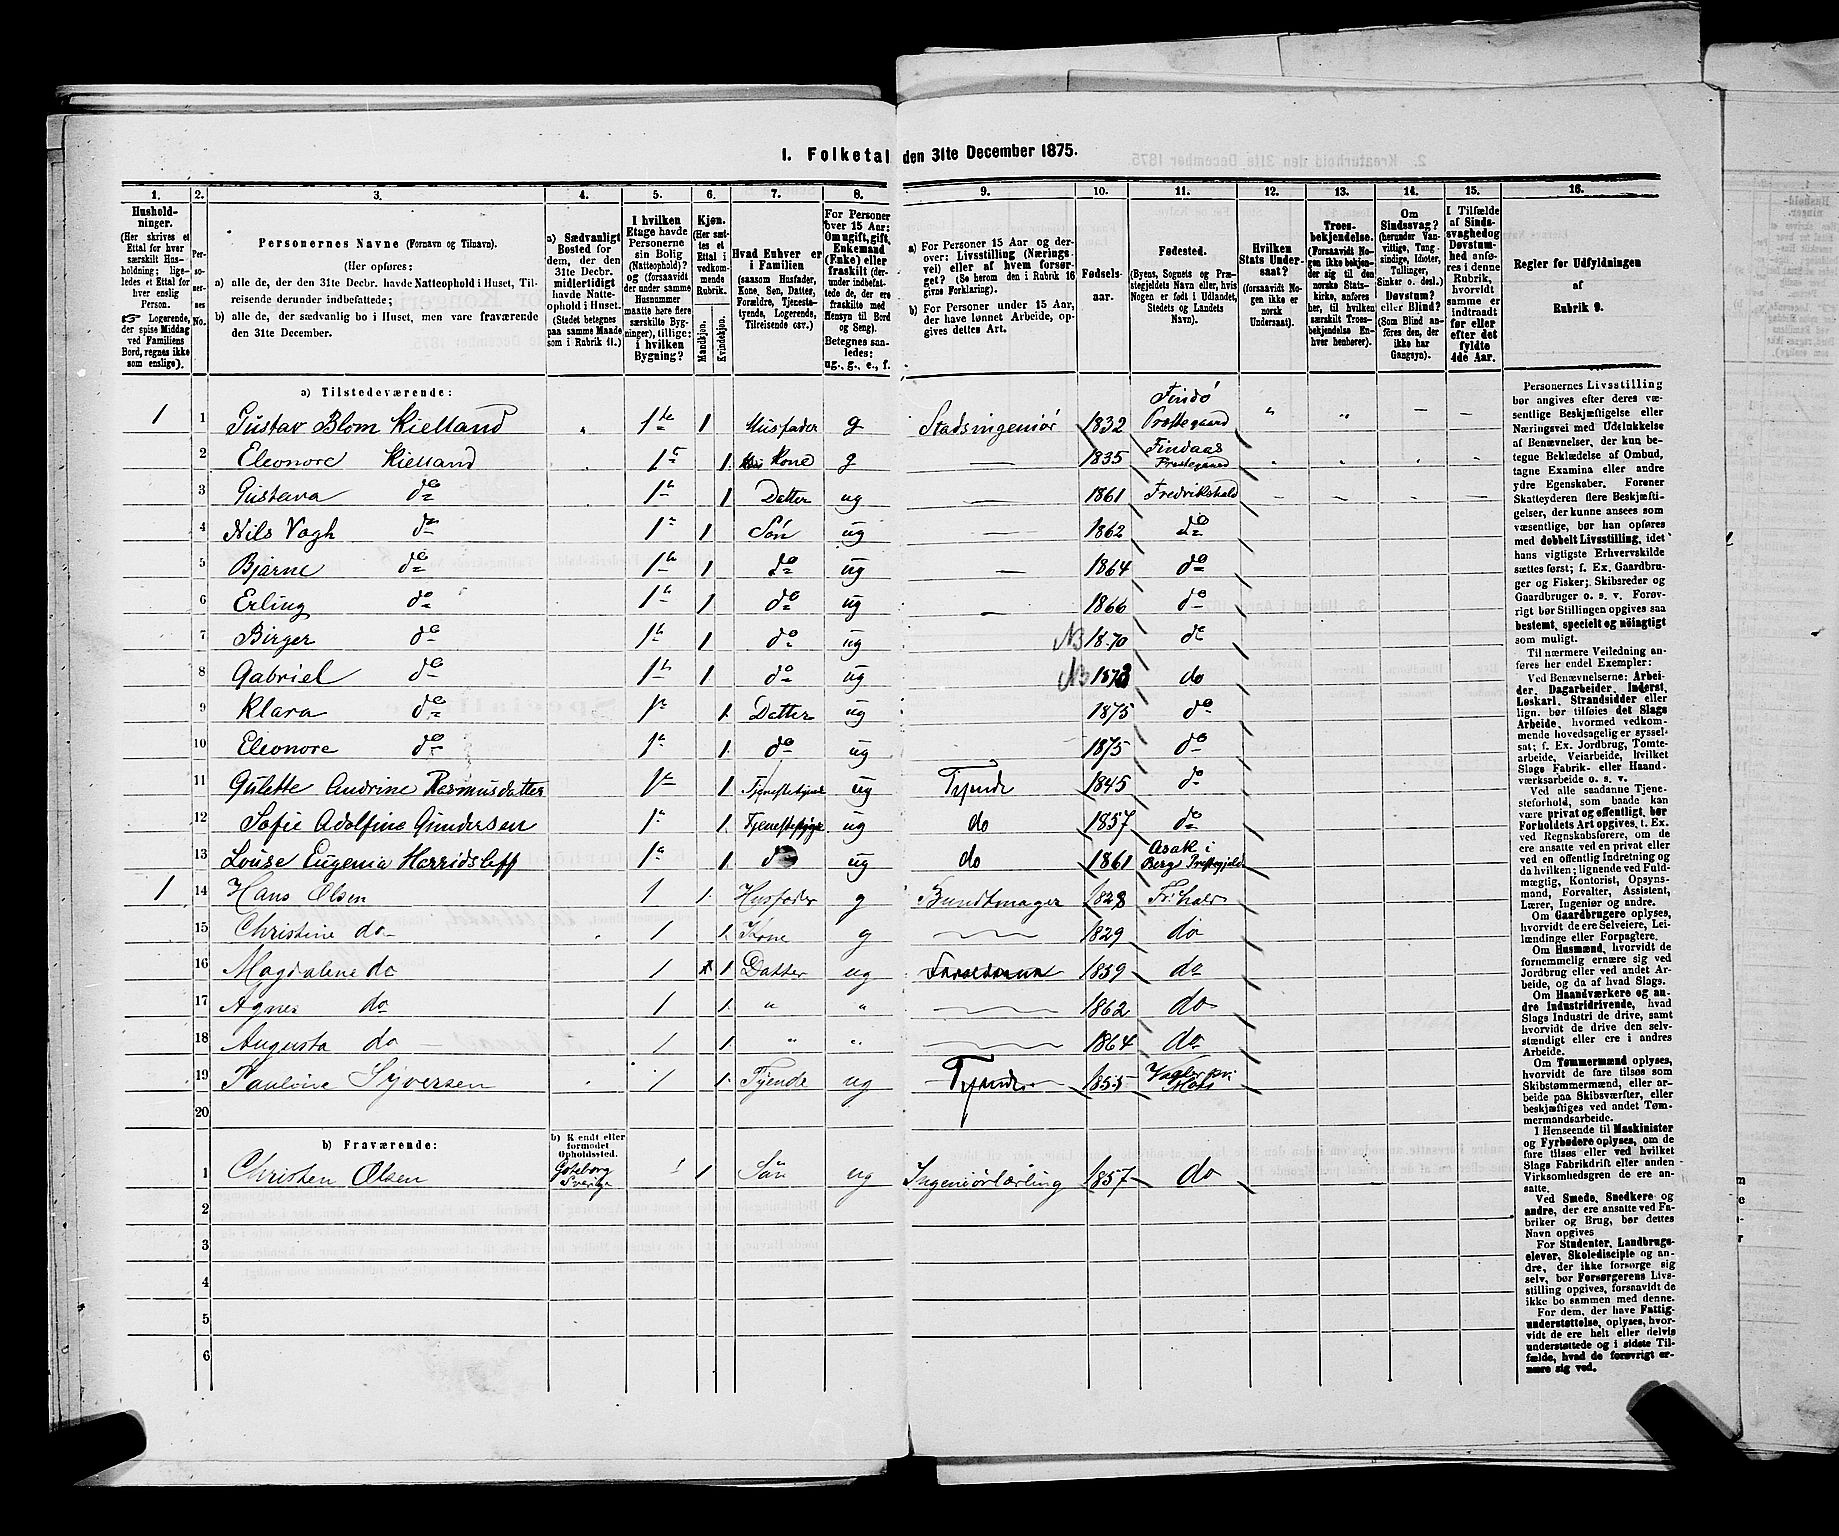 1. Folketal den 31te December 1875.
1. 2. 3. 4. 5. 6. 7. 8. 9. 10. 11. 12. 13. 14. 15. 16.
Husholdninger. (Her skrives et Ettal for hver særskilt Husholdning; ligeledes et Ettal for hver enslig Person. Logerende, der spise Middag ved Familiens Bord, regnes ikke som enslige).
Personernes No.
Personernes Navne (Fornavn og Tilnavn).
(Her opføres:
a) alle de, der den 31te Decbr. havde Natteophold i Huset, Tilreisende derunder indbefattede;
b) alle de, der sædvanlig bo i Huset, men vare fraværende den 31te December.
a) Sædvanligt Bosted for dem, der den 31te Decbr. midlertidigt havde Natteophold i Huset. (Stedet betegnes paa samme Maade som i Rubrik 11.)
I hvilken Etage havde Personerne sin Bolig (Natteophold)? og (forsaavidt der under samme Husnummer maatte høre flere særskilte Bygninger), tillige: i hvilken Bygning?
Kjøn. (Her sættes et Ettal i vedkommende Rubrik. Mandkjøn. Kvindekjøn.
Hvad Enhver er i Familien (saasom Husfader, Kone, Søn, Datter, Forældre, Tjenestetyende, Logerende, Tilreisende osv.)
For Personer over 15 Aar: Om ugift, gift, Enkemand (Enke) eller fraskilt (derunder indbefattede de, der ere fraskilte med Hensyn til Bord og Seng). Betegnes saaledes: ug., g., e., f.
a) For Personer 15 Aar og derover: Livsstilling (Næringsvei) eller af hvem forsørget? (Se herom den i Rubrik 16 givne Forklaring).
b) For Personer under 15 Aar, der have lønnet Arbeide, opgives dettes Art.
Fødselsaar.
Fødested. (Byens, Sognets og Præstegjeldets Navn eller, hvis Nogen er født i Udlandet, Stedets og Landets Navn).
Hvilken Stats Undersaat? (forsaavidt Nogen ikke er norsk Undersaat).
Troesbekjendelse. (Forsaavidt Nogen ikke bekjender sig til den norske Statskirke, anføres her, til hvilken særskilt Troesbekjendelse Enhver henhører).
Om Sindssvag? (herunder Vanvittige, Tungsindige, Idioter, Tullinger, Sinker o. desl.) Døvstum? eller Blind? (Som Blind anføres den, der ikke har Gangsyn).
I Tilfælde af Sindssvaghed og Døvstumhed anføres i denne Rubrik, hvorvidt samme er indtraadt før eller efter det fyldte 4de Aar.
Regler for Udfyldningen af Rubrik 9.
a) Tilstedeværende:
1 1 Gustav Blom Kielland 1te 1 Husfader g Stadsingeniør 1832 Findø Præstegaard
2 Eleonore Kielland 1 1 Kone g — 1835 Findaas Præstegaard
3 Gustava do 1 1 Datter ug — 1861 Fredrikshald
4 Nils Vogh do 1 1 Søn ug — 1862 do
5 Bjarne do 1 1 do ug — 1864 do
6 Erling do 1 1 do ug — 1866 do
7 Birger do 1 1 do ug NB 1870 do
8 Gabriel do 1 1 do ug NB 1873 do
9 Klara do 1 1 Datter ug 1875 do
10 Eleonore do 1 1 do ug 1875 do
11 Gulette Andrine Rasmusdatter 1 1 Tjenestetyende ug Tyende 1845 do
12 Sofie Adolfine Gundersen 1 1 Tjenestepige ug do 1857 do
13 Louise Eugenia Herridsleff 1 1 do ug do 1861 Asak i Berg Prestegjeld
1 14 Hans Olsen 1 1 Husfader g Bundtmager 1828 Fr:hald
15 Christine do 1 1 Kone g 1829 do
16 Magdalene do 1 1 Datter ug 1859 do
17 Agnes do 1 1 " " 1862 do
18 Augusta do 1 1 " " 1864 do
19 Pauline Syversen 1 1 Tyende ug Tyende 1855
20
b) Fraværende:
b) Kjendt eller formodet Opholdssted.
1 Christen Olsen Gøteborg Sverige 1 1 Søn ug Ingeniørlærling 1857 do
2
3
4
5
6
Personernes Livsstilling bør angives efter deres væsentlige Beskjæftigelse eller Næringsvei med Udelukkelse af Benævnelser, der kun betegne Beklædelse af Ombud, tagne Examina eller andre ydre Egenskaber. Forener Skatteyderen flere Beskjæftigelser, der kunne ansees som væsentlige, bør han opføres med dobbelt Livsstilling, idet hans vigtigste Erhvervskilde sættes først; f. Ex. Gaardbruger og Fisker; Skibsreder og Gaardbruger o. s. v. Forøvrigt bør Stillingen opgives saa bestemt, specielt og nøiagtigt som muligt.
Til nærmere Veiledning anføres her endel Exempler:
Ved Benævnelserne: Arbeider, Dagarbeider, Inderst, Løskarl, Strandsidder eller lign. bør tilføies det Slags Arbeide, hvormed vedkommende hovedsagelig er sysselsat; f. Ex. Jordbrug, Tomtearbeide, Veiarbeide, hvilket Slags Fabrik- eller Haandværksarbeide o. s. v.
Ved alle saadanne Tjenesteforhold, som baade kan være privat og offentligt, bør Forholdets Art opgives, t. Ex. ved Regnskabsførere, om de ere ansatte ved en privat eller ved en offentlig Indretning og da hvilken; lignende ved Fuldmægtig, Kontorist, Opsynsmand, Forvalter, Assistent, Lærer, Ingeniør og andre.
Om Gaardbrugere oplyses, hvorvidt de ere Selveiere, Leilændinge eller Forpagtere.
Om Husmænd, hvorvidt de fornemmelig ernære sig ved Jordbrug eller ved andet Arbeide, og da af hvad Slags.
Om Haandværkere og andre Industridrivende, hvad Slags Industri de drive, samt hvorvidt de drive den selvstændigt eller ere i andres Arbeide.
Om Tømmermænd oplyses, hvorvidt de fare tilsøs som Skibstømmermænd, eller arbeide paa Skibsværfter, eller beskjæftiges ved andet Tømmermandsarbeide.
I Henseende til Maskinister og Fyrbødere oplyses, om de fare tilsøs eller ved hvilket Slags Fabrikdrift eller anden Virksomhedsgren de ere ansatte.
Ved Smede, Snedkere og andre, der ere ansatte ved Fabriker og Brug, bør dettes Navn opgives
For Studenter, Landbrugselever, Skoledisciple og andre, der ikke forsørge sig selv, bør Forsørgerens Livsstilling opgives, forsaavidt de ikke bo sammen med denne.
For dem, der have Fattigunderstøttelse, oplyses, hvorvidt de ere helt eller delvis understøttede og i sidste Tilfælde, hvad de forøvrigt ernære sig ved.